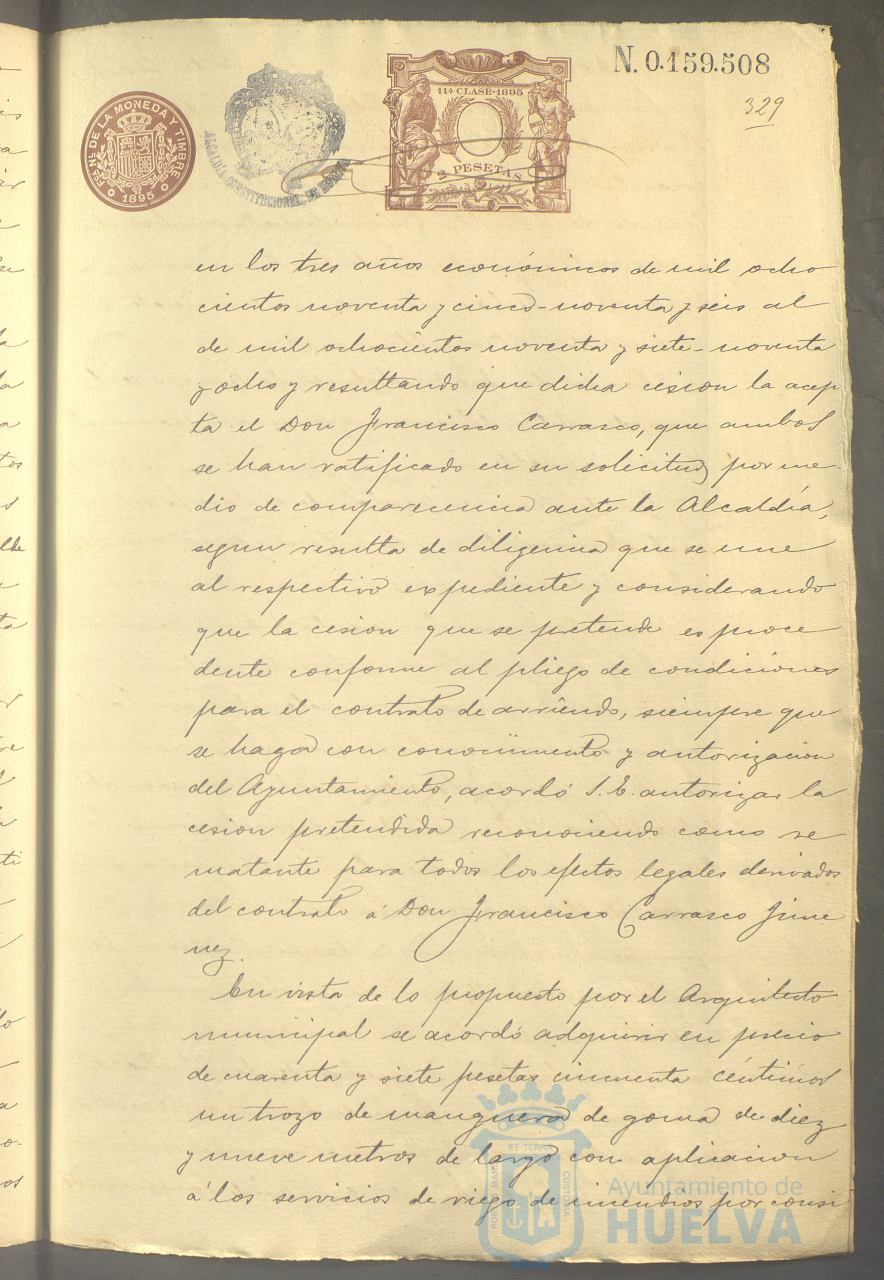 N. 0.159.508
329
FCA. NL. DE LA MONEDA Y TIMBRE
1895
ALCALDÍA CONSTITUCIONAL DE HUELVA
11ª CLASE-1895
2 PESETAS
en los tres años económicos de mil ocho
cientos noventa y cinco-noventa y seis al
de mil ochocientos noventa y siete-noventa
y ocho y resultando que dicha cesion la acep
ta el Don Francisco Carrasco, que ambos
se han ratificado en su solicitud por me
dio de comparecencia ante la Alcaldía,
segun resulta de diligencia que se une
al respectivo expediente y considerando
que la cesion que se pretende es proce
dente conforme al pliego de condiciones
para el contrato de arriendo, siempre que
se haga con conocimiento y autorizacion
del Ayuntamiento, acordó S. E. autorizar la
cesion pretendida reconociendo como re
matante para todos los efectos legales derivados
del contrato á Don Francisco Carrasco Jime
nez.
En vista de lo propuesto por el Arquitecto
municipal se acordó adquirir en precio
de cuarenta y siete pesetas cincuenta céntimos
un trozo de manguera de goma de diez
y nueve metros de largo con aplicacion
á los servicios de riego de incendios por consi
PORTUS MARIS ET TERRAE CUSTODIA
Ayuntamiento de
HUELVA